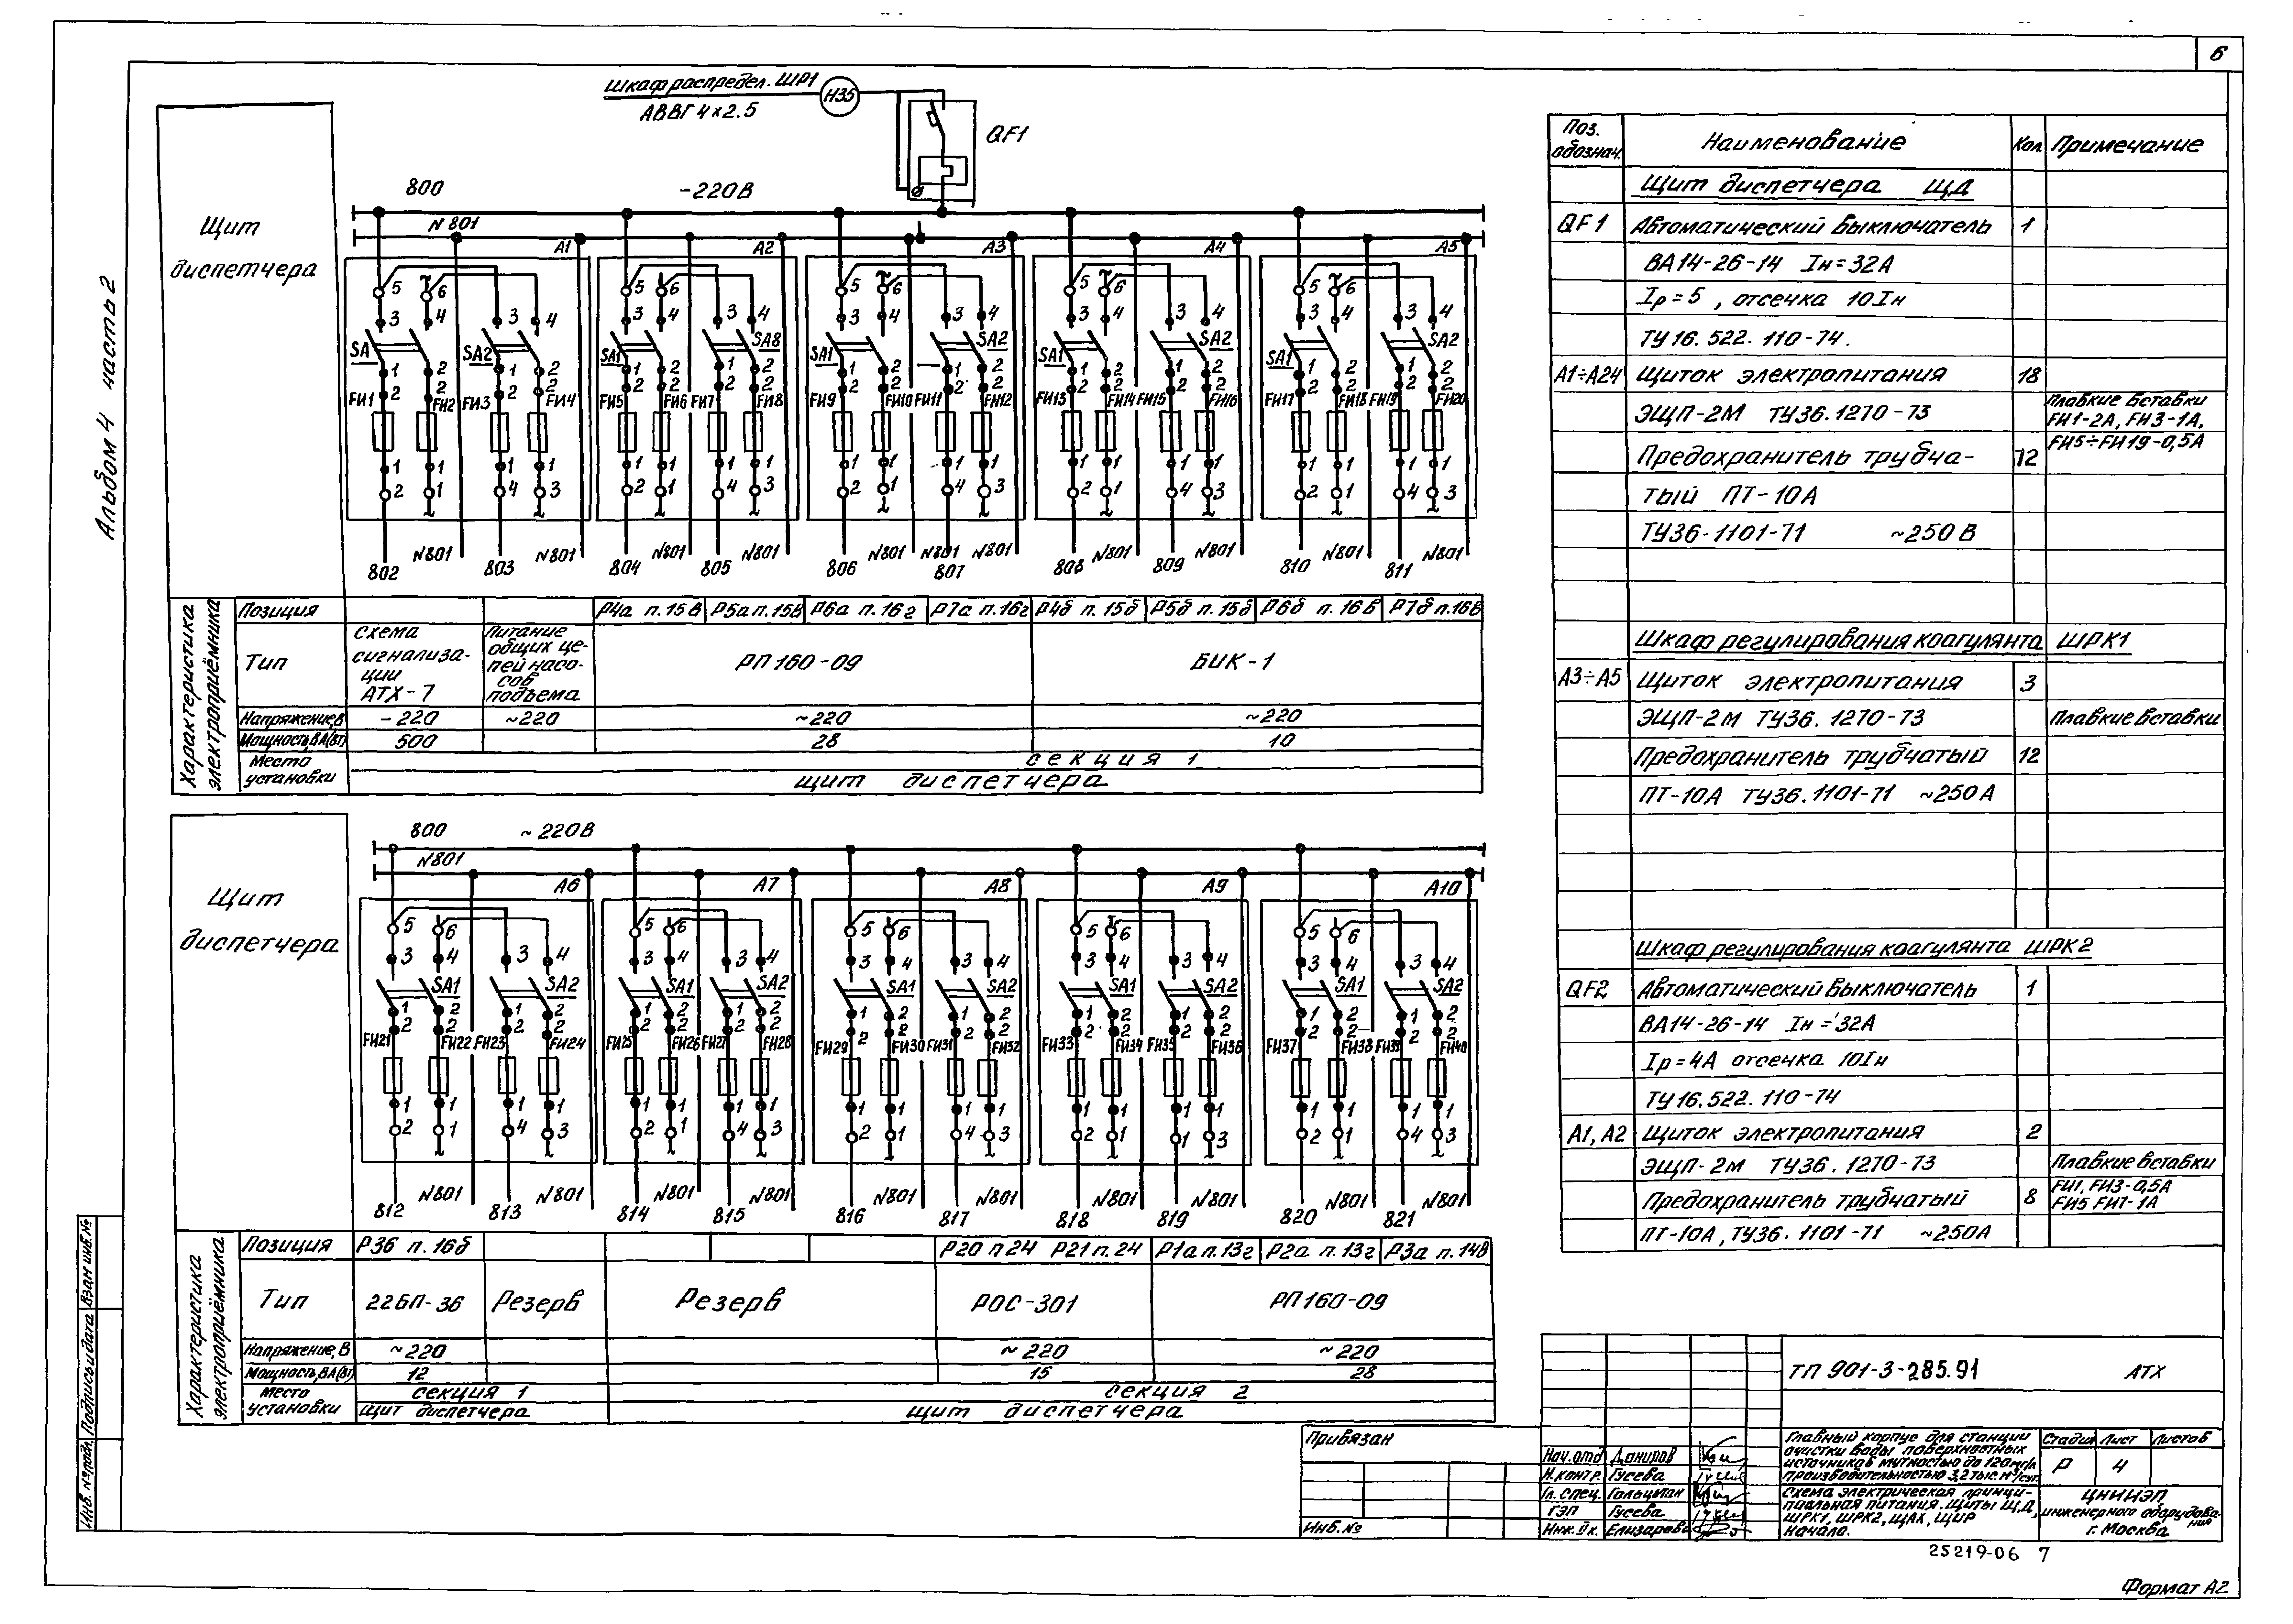 6
Альбом 4 часть 2
Шкаф распредел. ШР1
АВВГ 4×2.5
Н35
QF1
Щит
диспетчера
800
-220В
N 801
А1 А2 А3 А4 А5
5 6 5 6 5 6 5 6 5 6
3 4 3 4 3 4 3 4 3 4 3 4 3 4 3 4 3 4 3 4
SA SA2 SA1 SA8 SA1 SA2 SA1 SA2 SA1 SA2
1 2 1 2 1 2 1 2 1 2 1 2 1 2 1 2 1 2 1 2
FИ1 FИ2 FИ3 FИ4 FИ5 FИ6 FИ7 FИ8 FИ9 FИ10 FИ11 FИ12 FИ13 FИ14 FИ15 FИ16 FИ17 FИ18 FИ19 FИ20
2 1 4 3 2 1 4 3 2 1 4 3 2 1 4 3 2 1 4 3
802 N801 803 N801 804 N801 805 N801 806 N801 N801 807 N801 808 N801 809 N801 810 N801 811 N801
Характеристика
электроприёмника
Позиция Р4а п.15в Р5а п.15в Р6а п.16г Р7а п.16г Р4б п.15б Р5б п.15б Р6б п.16в Р7б п.16в
Тип
Схема
сигнализа-
ции
АТХ-7
Питание
общих це-
пей насо-
сов
подъема
РП160-09
БИК-1
Напряжение,В -220 ~220 ~220 ~220
Мощность,ВА(Вт) 500 28 10
Место
установки
секция 1
щит диспетчера
Щит
диспетчера
800 ~220В
N801
А6 А7 А8 А9 А10
5 6 5 6 5 6 5 6 5 6
3 4 3 4 3 4 3 4 3 4 3 4 3 4 3 4 3 4 3 4
SA1 SA2 SA1 SA2 SA1 SA2 SA1 SA2 SA1 SA2
1 2 1 2 1 2 1 2 1 2 1 2 1 2 1 2 1 2 1 2
FИ21 FИ22 FИ23 FИ24 FИ25 FИ26 FИ27 FИ28 FИ29 FИ30 FИ31 FИ32 FИ33 FИ34 FИ35 FИ36 FИ37 FИ38 FИ39 FИ40
2 1 4 3 2 1 4 3 2 1 4 3 2 1 1 3 2 1 4 3
812 N801 813 N801 814 N801 815 N801 816 N801 817 N801 818 N801 819 N801 820 N801 821 N801
Характеристика
электроприёмника
Позиция Р36 п.16б Р20 п24 Р21 п.24 Р1а п.13г Р2а п.13г Р3а п.14в
Тип 22БП-36 Резерв Резерв РОС-301 РП160-09
Напряжение,В ~220 ~220 ~220
Мощность,ВА(Вт) 12 15 28
Место
установки
секция 1 секция 2
щит диспетчера щит диспетчера
Поз.
обознач.
Наименование Кол. Примечание
Щит диспетчера ЩД
QF1 Автоматический выключатель 1
ВА14-26-14 Iн=32А
Iр=5 , отсечка 10Iн
ТУ16.522.110-74.
А1÷А24 Щиток электропитания 18
ЭЩП-2М ТУ36.1270-73
Плавкие вставки
FИ1-2А, FИ3-1А,
FИ5÷FИ19-0,5А
Предохранитель трубча- 12
тый ПТ-10А
ТУ36-1101-71 ~250В
Шкаф регулирования коагулянта ШРК1
А3÷А5 Щиток электропитания 3
ЭЩП-2М ТУ36.1270-73 Плавкие вставки
Предохранитель трубчатый 12
ПТ-10А ТУ36.1101-71 ~250А
Шкаф регулирования коагулянта ШРК2
QF2 Автоматический выключатель 1
ВА14-26-14 Iн=32А
Iр=4А отсечка 10Iн
ТУ16.522.110-74
А1, А2 Щиток электропитания 2
ЭЩП-2М ТУ36.1270-73 Плавкие вставки
Предохранитель трубчатый 8
FИ1, FИ3-0,5А
FИ5 FИ7-1А
ПТ-10А, ТУ36.1101-71 ~250А
Инв. № подл. Подпись и дата Взам инв. №
Привязан
Инв. №
Нач.отд Данилов
Н.контр. Гусева
Гл. спец. Гольцман
ГЭП Гусева
Инж. IIк. Елизарова
ТП 901-3-285.91 АТХ
Главный корпус для станции
очистки воды поверхностных
источников мутностью до 120мг/л
производительностью 3,2 тыс. м³/сут.
Стадия Лист Листов
Р 4
Схема электрическая принци-
пиальная питания. Щиты ЩД,
ШРК1, ШРК2, ЩАХ, ЩИР
Начало.
ЦНИИЭП
инженерного оборудова-
ния
г. Москва
25219-06 7
Формат А2